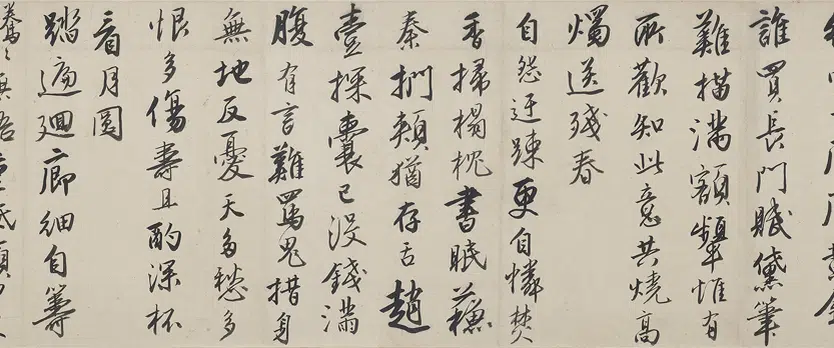 黃金
誰買長門賦黛筆
難描滿額顰惟有
所歡知此意共燒高
燭送殘春
自怨迂踈更自憐焚
香掃榻枕書眠蘓
秦捫頰猶存舌趙
壹探囊已沒錢滿
腹有言難罵鬼措身
無地反憂天多愁多
恨多傷壽且酌深杯
看月圓
踏遍迴廊細自籌
低頭